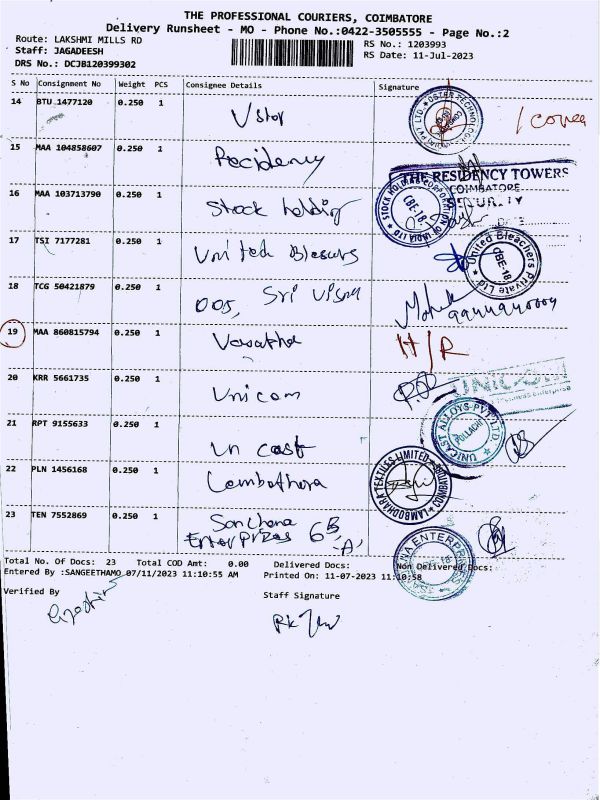 THE PROFESSIONAL COURIERS, COIMBATORE
Delivery Runsheet - MO - Phone No.:0422-3505555 - Page No.:2
Route: LAKSHMI MILLS RD
RS No.: 1203993
Staff: JAGADEESH
RS Date: 11-Jul-2023
DRS No.: DCJB120399302
S No Consignment No Weight PCS Consignee Details Signature
14 BTU 1477120 0.250 1 Vstor
15 MAA 104858607 0.250 1 Recidency
THE RESIDENCY TOWERS
COIMBATORE
16 MAA 103713790 0.250 1 Stock holding
STOCK HOLDING CORPORATION OF INDIA LTD
CBE-18
17 TSI 7177281 0.250 1 Unitech
United Bleachers Private Ltd
CBE-18
18 TCG 50421879 0.250 1 005, Sri
19 MAA 860815794 0.250 1 Vasatha H/R
20 KRR 5661735 0.250 1 Unicom
UNICOM
21 RPT 9155633 0.250 1 Un cast
UNICAST ALLOYS-PVT.LTD.
POLLACHI
22 PLN 1456168 0.250 1 Lambothora
LAMBODHARA TEXTILES LIMITED
23 TEN 7552869 0.250 1 Sanchana
Enterprizes 6B,
A,
Total No. Of Docs: 23 Total COD Amt: 0.00 Delivered Docs: Non Delivered Docs:
Entered By :SANGEETHAMO 07/11/2023 11:10:55 AM Printed On: 11-07-2023 11:10:58
Verified By
Staff Signature